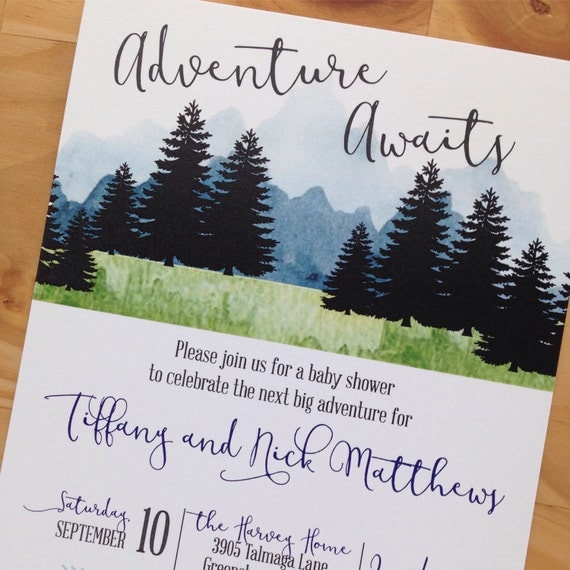 Adventure
Awaits
Please join us for a baby shower
to celebrate the next big adventure for
Tiffany and Nick Matthews
Saturday
SEPTEMBER 10
the Harvey Home
3905 Talmaga Lane